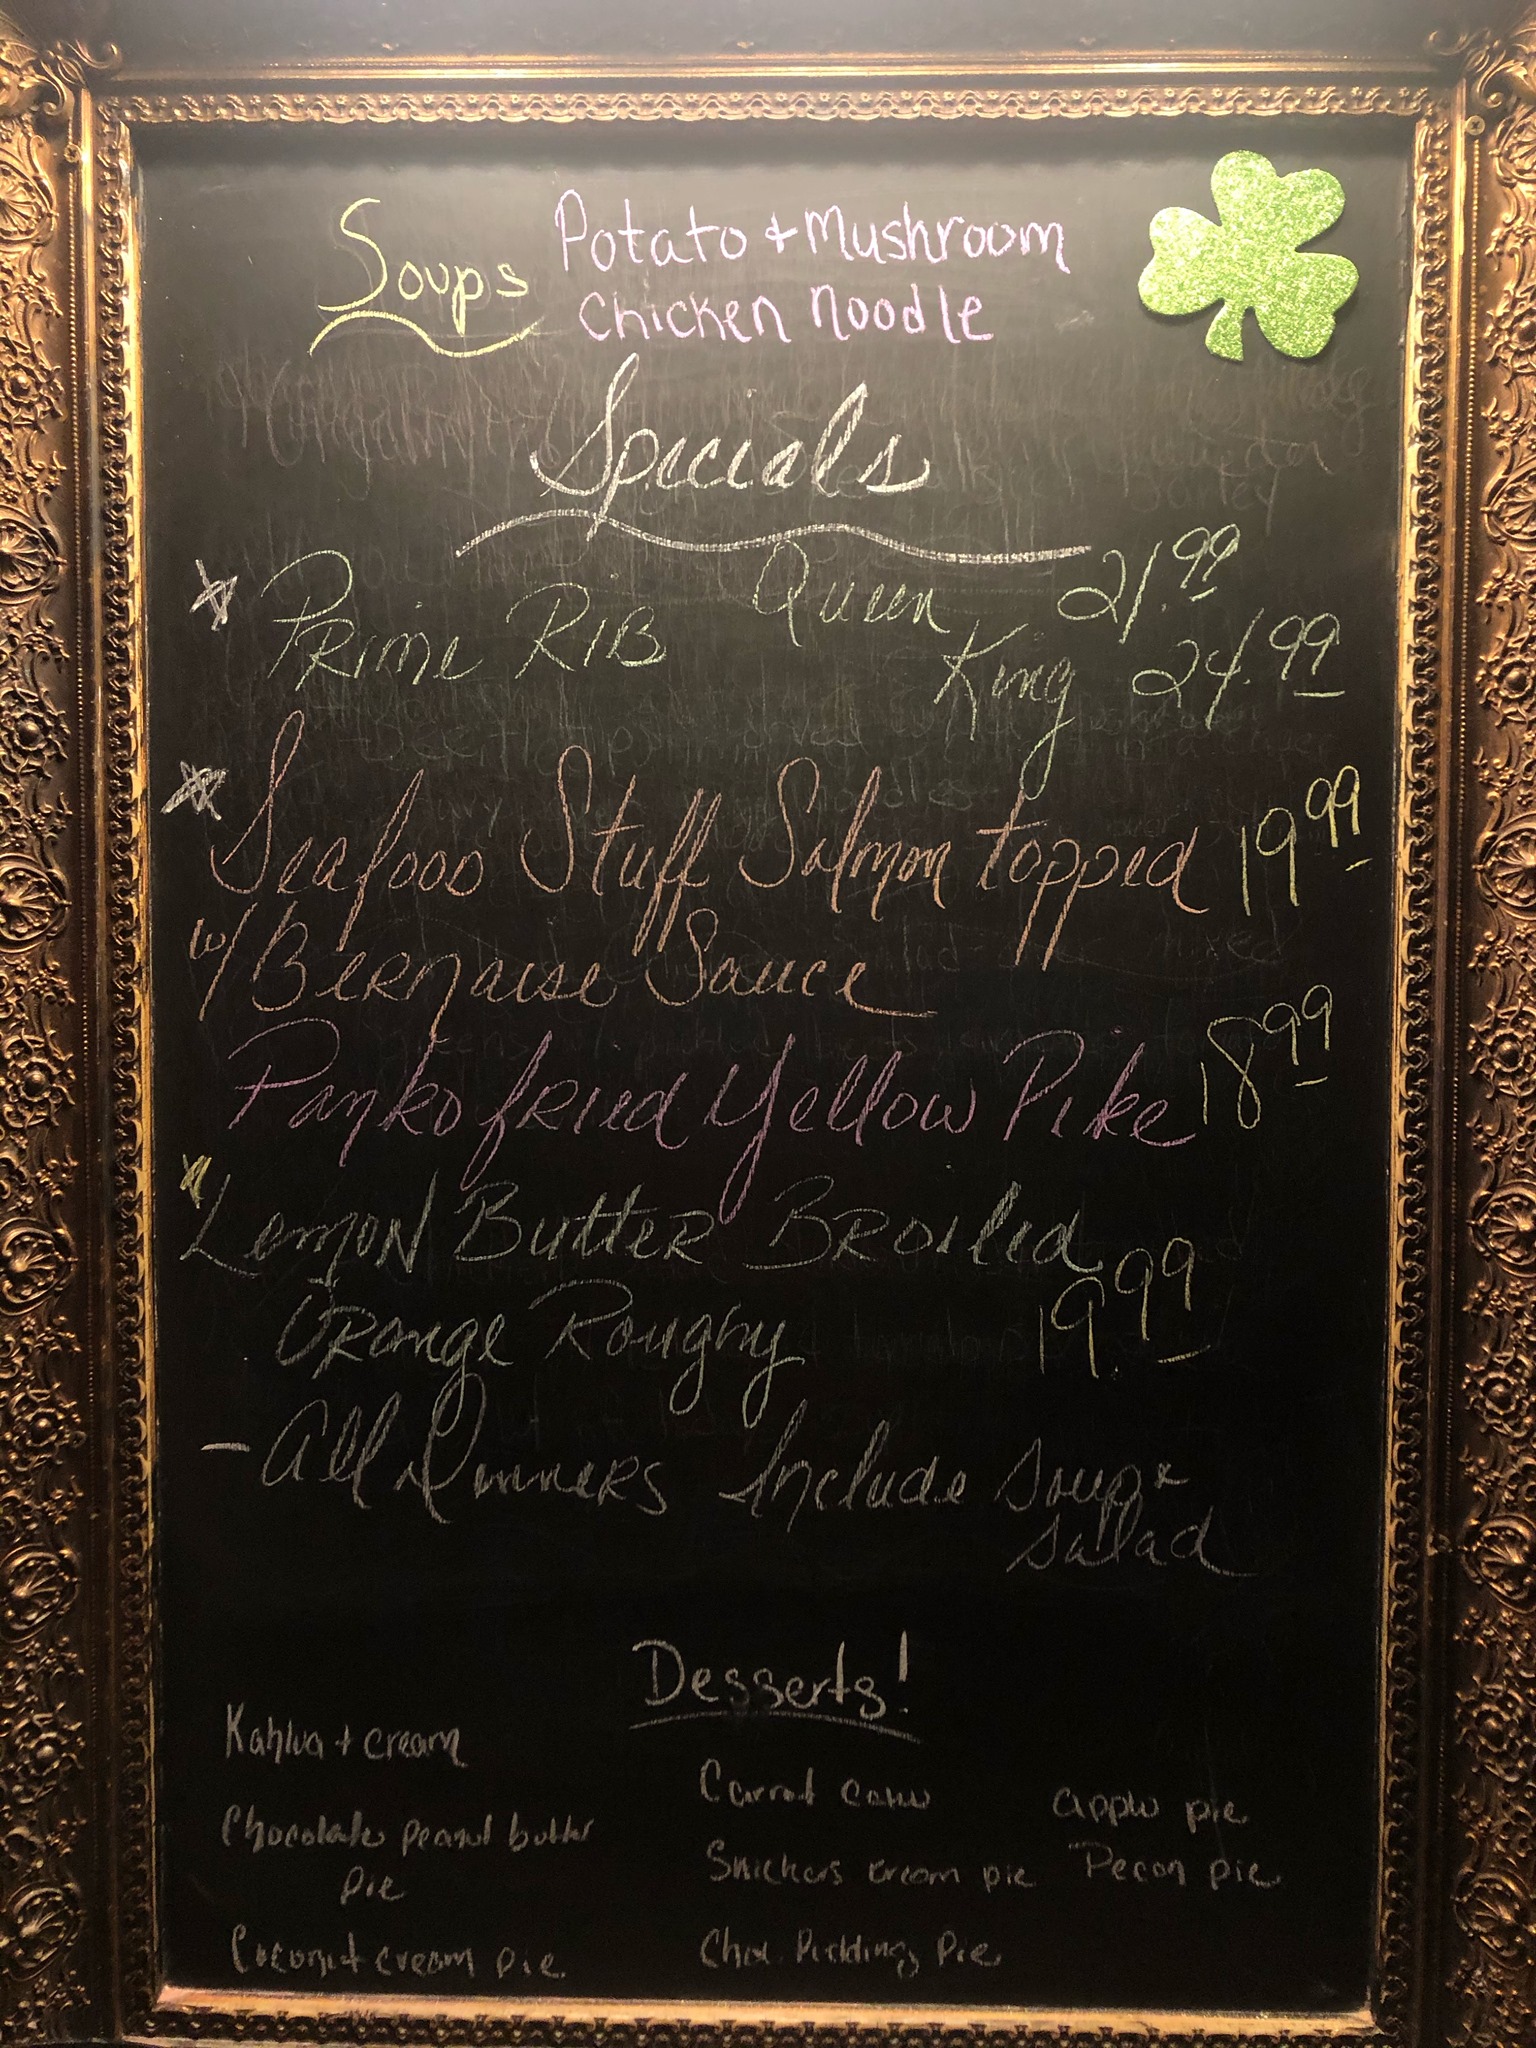 Soups Potato + Mushroom
Chicken Noodle
Specials
Prime Rib Queen 21.99
King 24.99
Seafood Stuff Salmon topped 19 99
w/ Bernaise Sauce
Panko fried Yellow Pike 18 99
Lemon Butter Broiled
Orange Roughy 19 99
- All Dinners Include soup +
salad
Desserts!
Kahlua + cream
Chocolate peanut butter
pie
Coconut cream pie
Carrot cake
Snickers cream pie
Choc. Pudding Pie
apple pie
Pecan pie